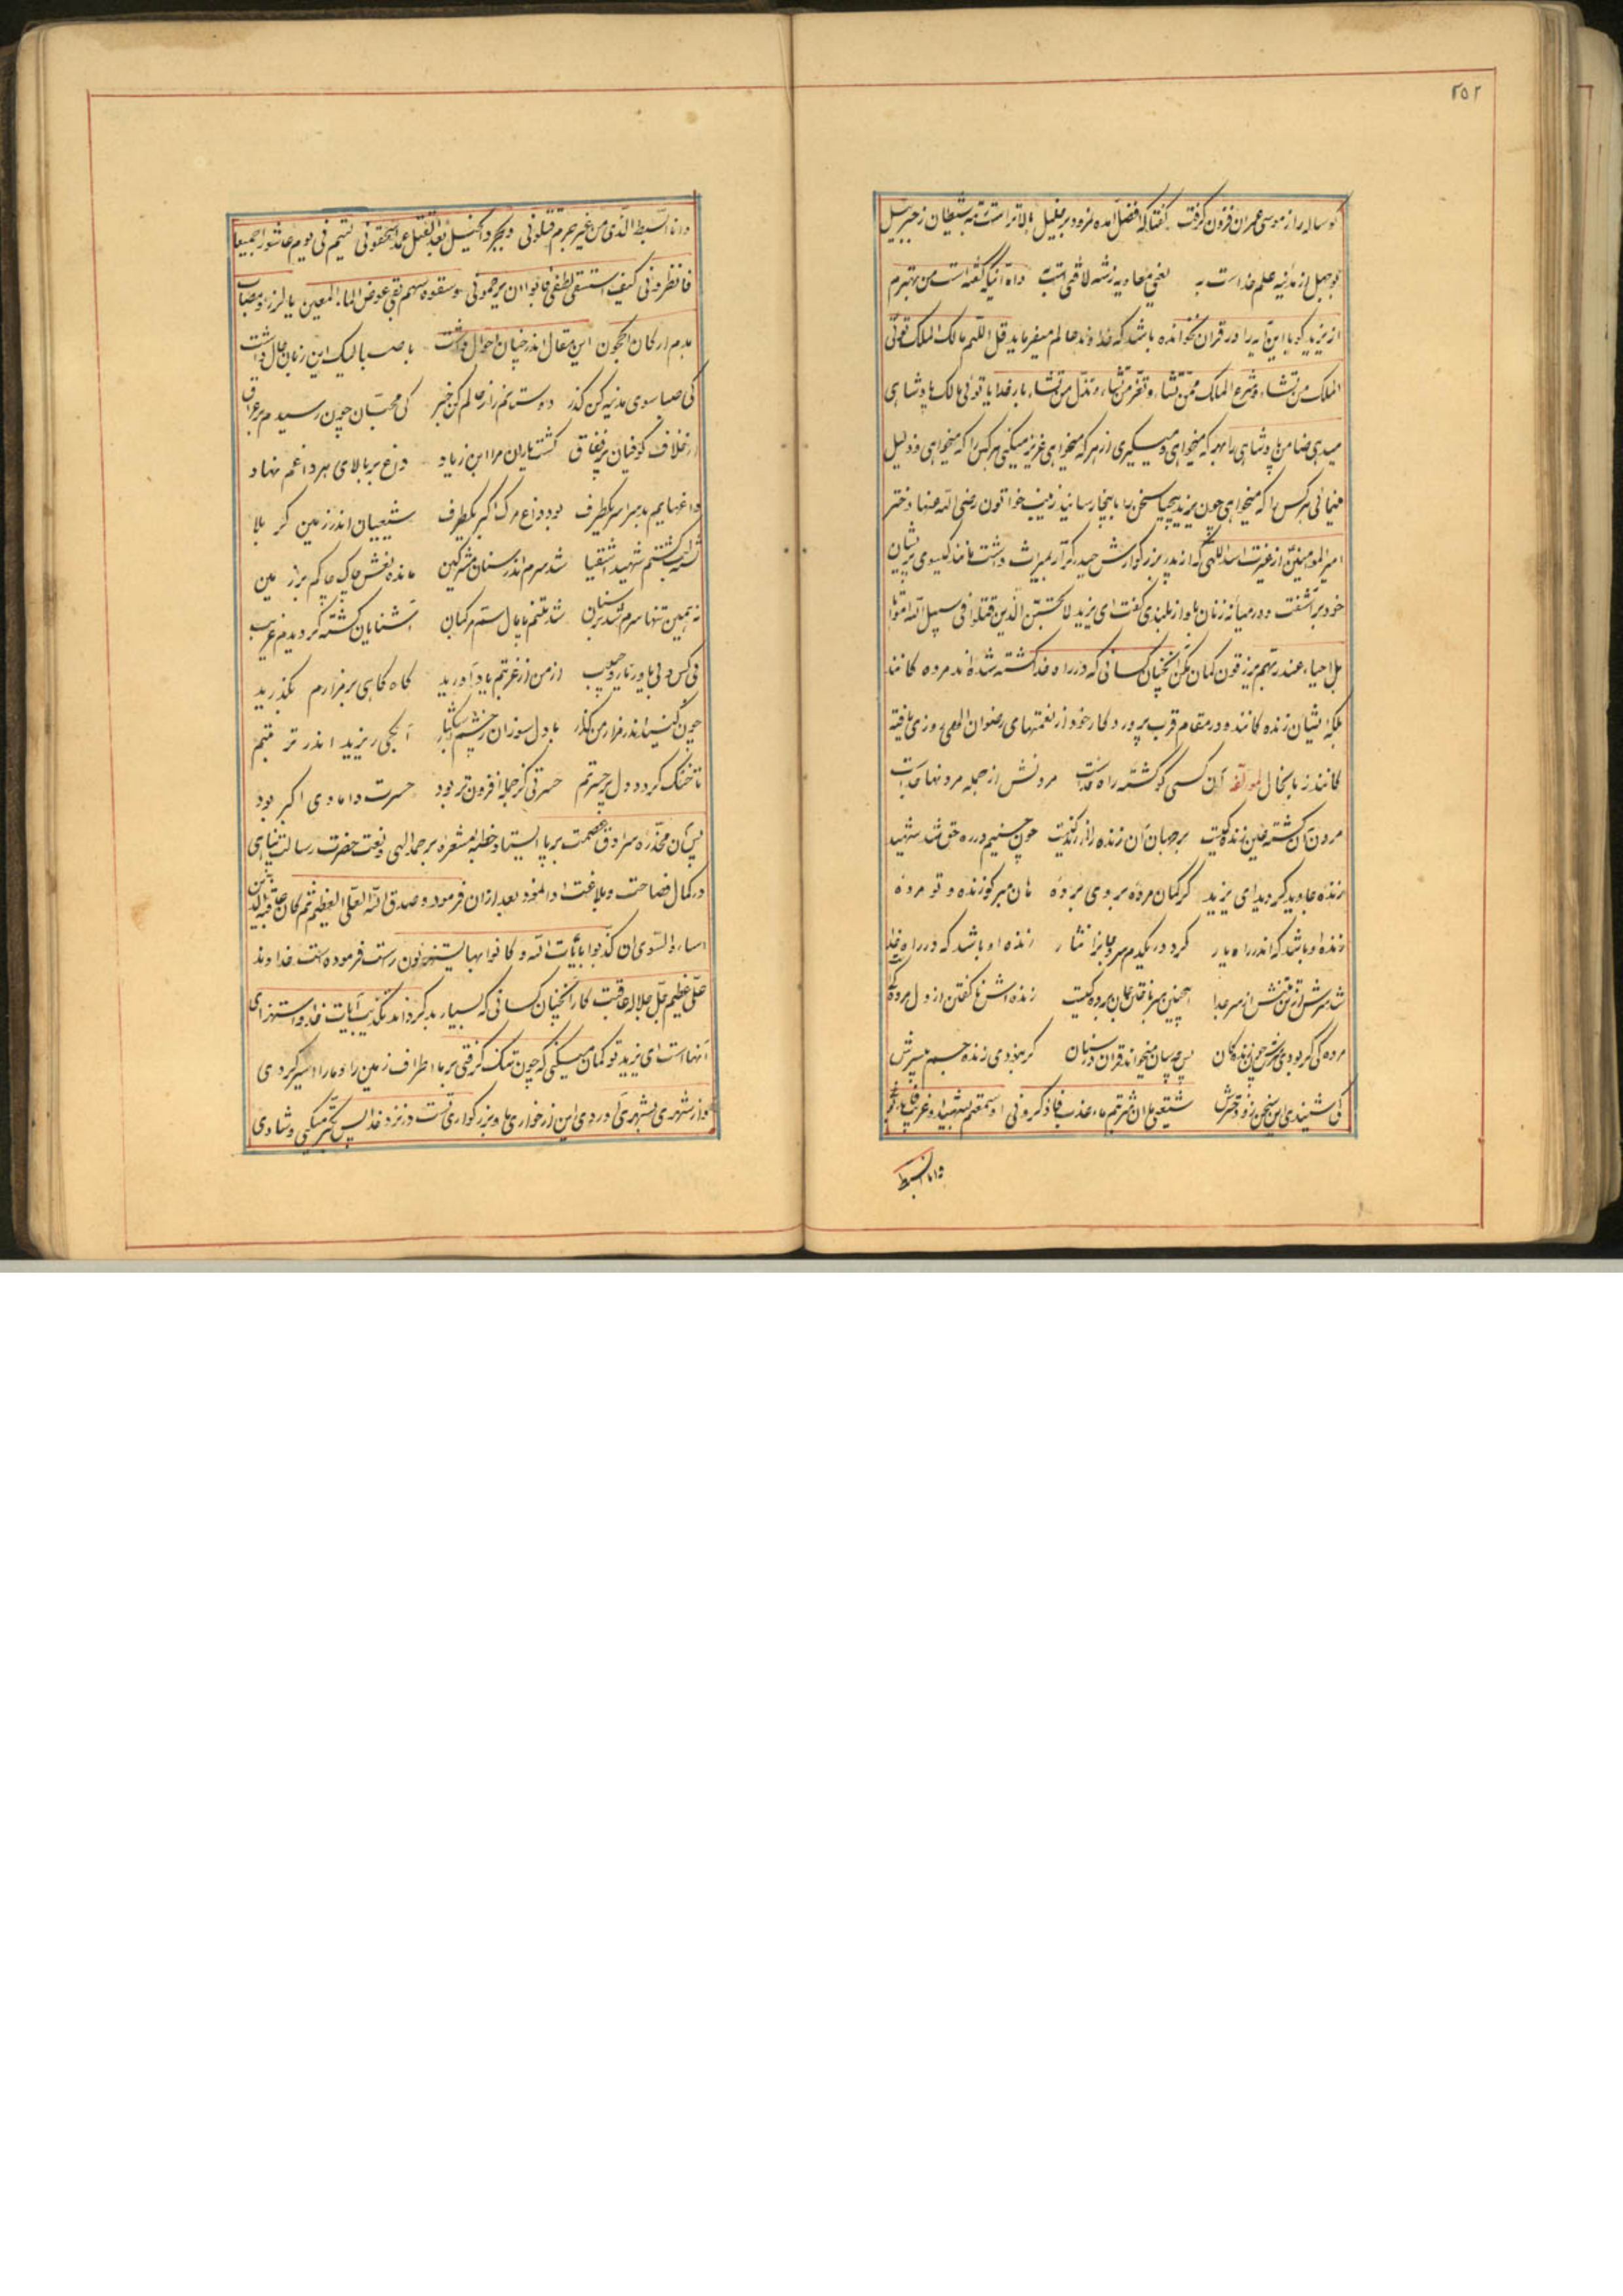 ٢٥٢
کوساله را از موسی عمران فزون گرفت گفتا که افضل آمده نمرود بر خلیل بالاتر است رتبه شیطان ز جبرئیل
بوجهل از مدینه علم خداست به یعنی معاویه ز شه لافتی است واه آنکه گفته است من بهترم
از یزید کویا این آیه را در قرآن نخوانده باشد که خداوند عالم میفرماید قل اللهم مالک الملک تؤتی
الملک من تشاء وتنزع الملک ممن تشاء وتعز من تشاء وتذل من تشاء بار خدایا توئی مالک پادشاهی
میدهی پادشاهی را بهر که میخواهی و میگیری از هر که میخواهی عزیز میکنی هر کس را که میخواهی و ذلیل
مینمائی هر کس را که میخواهی چون یزید سخن را باینجا رسانید زینب خواتون رضی الله عنها دختر
امیر المومنین از غیرت اسد اللهی که از پدر بزرکوارش حیدر کرار بمیراث داشت مانند کیسوی پریشان
خود برآشفت و در میانه زنان باواز بلندی گفت ای یزید لا تحسبن الذین قتلوا فی سبیل الله امواتا
بل احیاء عند ربهم یرزقون کمان مکن آنچنان کسانی که در راه خدا کشته شده اند مرده کانند
بلکه ایشان زنده کانند و در مقام قرب پروردکار خود از نعمتهای رضوان الهی روزی یافته
کانند زبانحال لمؤلفه آن کسی کو کشته راه خداست مردنش از جمله مردنها جداست
مردن آن کشته عین زنده کیست بر جهان آن زنده را فرخندکیست چون حسینم در ره حق شد شهید
زنده جاوید کردید ای یزید کر کمان مرده بر وی برده هان مبر کو زنده و تو مرده
زنده او باشد که اندر راه یار کرد در یکدم سر و جانرا نثار زنده او باشد که در راه خدا
شد سرش از تن تنش از سر جدا اینچنین سر باختن جان بردن کیست زنده اش ناکفتن از دل مردکیست
مرده کی کر بودی سرش چون زنده کان پس چسان میخواند قران در سنان کر نبودی زنده جسم بی سرش
کی شنیدی این سخن زو دخترش شیعتی ما ان شربتم ماء عذب فاذکرونی او سمعتم بشهید او غریب فاندبونی
وانا السبط
وانا السبط الذی من غیر جرم قتلونی وبجرد الخیل بعد القتل عمدا سحقونی لیتکم فی یوم عاشورا جمیعا
فانظرونی کیف استسقی لطفلی فابوا ان یرحمونی وسقوه سهم بغی عوض الماء المعین یا لرزء ومصاب
هدم ارکان الحجون این مقال اندر چنان احوال داشت با صبا لیک این زبان حال داشت
کی صبا سوی مدینه کن کذر دوستانم را ز حالم کن خبر کی محبان چون رسیدم بر عراق
از خلاف کوفیان پر نفاق کشت یاران مرا ابن زیاد داغ بر بالای هر داغم نهاد
داغهایم سر بسر یکطرف بود داغ مرک اکبر یکطرف شیعیان اندر زمین کربلا
تشنه لب کشتم شهید اشقیا شد سرم اندر سنان مشرکین مانده نعش چاک چاکم بر زمین
نه همین تنها سرم شد بر سنان شد تنم پامال سم مرکبان آشنایان کشته کردیدم غریب
بی کس و بی یاور و یار و حبیب از من از غربتم یاد آورید کاه کاهی بر مزارم بکذرید
چون کنید اندر مزار من کذار با دل سوزان و چشم اشکبار آبکی ریزید اندر تربتم
تا خنک کردد دل پر حسرتم حسرتی کز جمله افزون تر بود حسرت دامادی اکبر بود
پس آن مخدره سرادق عصمت برپا ایستاد و خطبه مشعره بر حمد الهی و نعت حضرت رسالت پناهی
در کمال فصاحت و بلاغت ادا نمود بعد ازان فرمود وصدق الله العلی العظیم ثم کان عاقبة الذین
اساء والسوای ان کذبوا بایات الله وکانوا بها یستهزؤن راست فرموده است خداوند
علی عظیم جل جلاله عاقبت کار آنچنان کسانی که بسیار بد کرده اند تکذیب آیات خدا و استهزای
آنها است ای یزید تو کمان میکنی که چون تنک کرفتی بر ما اطراف زمین را و مارا اسیر کردی
واز شهری بشهری آوردی این از خواری ما و بزرکواری تست در نزد خدا پس تکبر میکنی و شادی